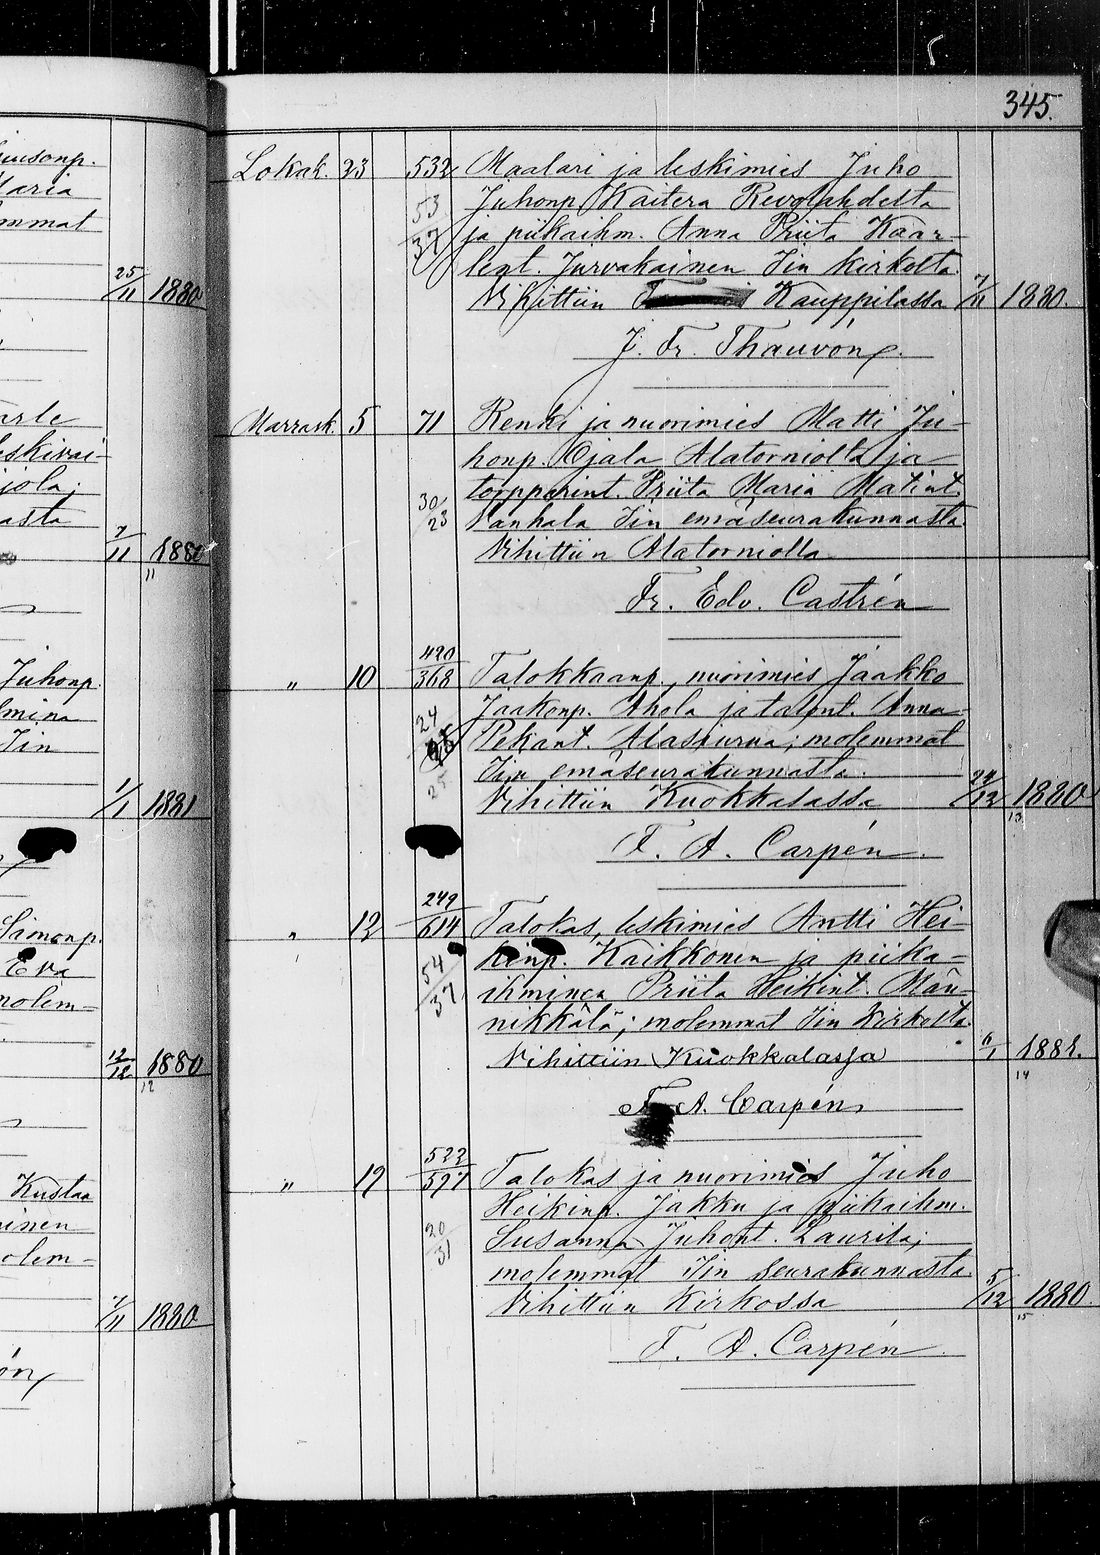 345.
Lokak. 23 532 Maalari ja leskimies Juho
53 Juhonp. Kaitera Revolahdelta
37 ja piikaihm. Anna Priita Kaar-
lent. Jurvakainen Iin kirkolta.
Vihittiin Kauppilassa 7/11 1880.
J. Fr. Thauvón
Marrask. 5 71 Renki ja nuorimies Matti Ju-
honp. Ojala Alatorniolta ja
30/23 torpparint. Priita Maria Matint.
Vanhala Iin emäseurakunnasta.
Vihittiin Alatorniolla
Fr. Edv. Castrén
" 10 420/368 Talokkaanp., nuorimies Jaakko
24 Jaakonp. Ahola ja talont. Anna
Pekant. Alasurua; molemmat
25 Iin emäseurakunnasta.
Vihittiin Kuokkalassa 24/12 1880
13
F. A. Carpén
" 12 249/614 Talokas, leskimies Antti Hei-
54/37 kinp. Kaikkonen ja piika-
ihminen Priita Heikint. Män-
nikkälä; molemmat Iin kirkolta.
Vihittiin Kuokkalassa 6/1 1881.
14
F. A. Carpén
" 19 522/597 Talokas ja nuorimies Juho
Heikinp. Jakku ja piikaihm.
20/31 Susanna Juhont. Laurila;
molemmat Iin seurakunnasta.
Vihittiin Kirkossa 5/12 1880.
15
F. A. Carpén
Maria
mmat
25/11 1880
leskivai-
jola;
asta
7/11 1880
11
Juhonp.
lmina
Iin
1/1 1881
Samonp.
Eva
molem-
12/12 1880
12
Kustaa
ainen
olem-
7/11 1880